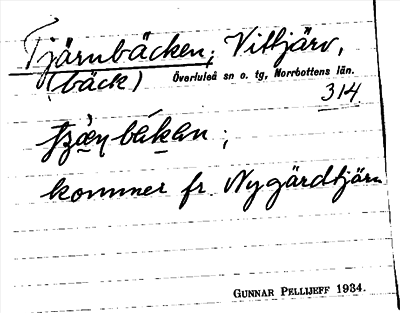 Tjärnbäcken; Vittjärv,
(bäck) Överluleå sn o. tg, Norrbottens län.
314
bäkən;
kommer fr. Nygärdtjärn
GUNNAR PELLIJEFF 1934.